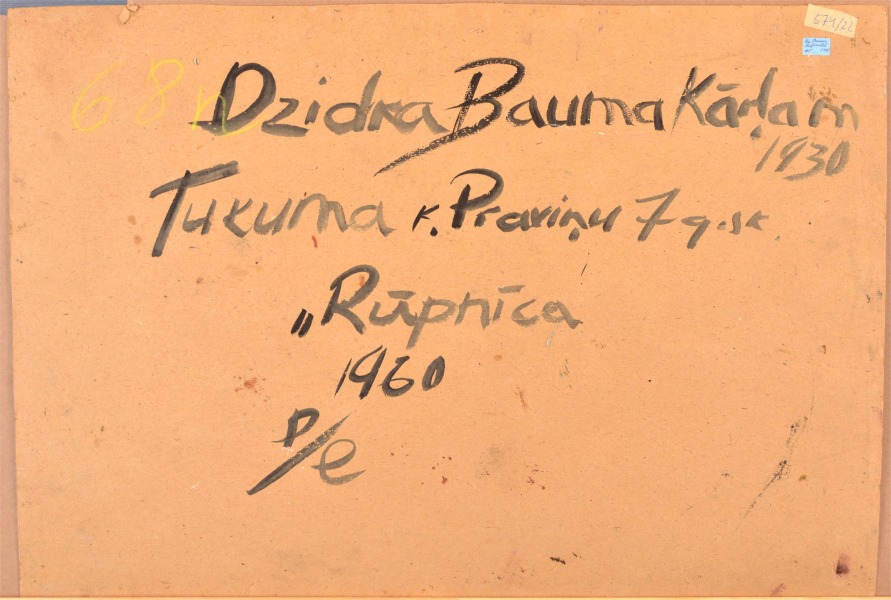 574/22
68n
Dzidra Bauma Kārļa m
1930
Tukuma k. Praviņu 7 g. sk.
„Rūpnīca
1960
p/e